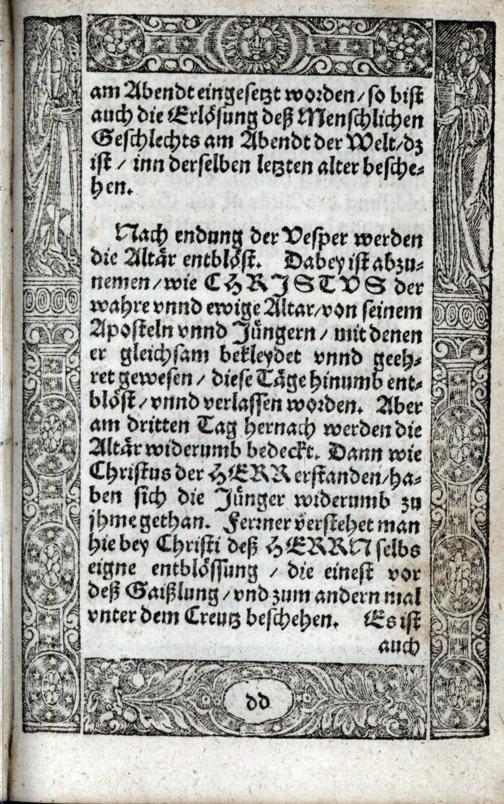 am Abendt eingesetzt worden/ so bist
auch die Erlösung deß Menschlichen
Geschlechts am Abendt der Welt/ dz
ist / inn derselben letzten alter besche-
hen.
Nach endung der Vesper werden
die Altär entblöst. Dabey ist abzu-
nemen/ wie CHRISTVS der
wahre vnnd ewige Altar/ von seinem
Aposteln vnnd Jüngern / mit denen
er gleichsam bekleydet vnnd geeh-
ret gewesen / diese Täge hinumb ent-
blöst / vnnd verlassen worden. Aber
am dritten Tag hernach werden die
Altär widerumb bedeckt. Dann wie
Christus der HERR erstanden/ ha-
ben sich die Jünger widerumb zu
jhme gethan. Ferrner verstehet man
hie bey Christi deß HERRN selbs
eigne entblössung / die einest vor
deß Gaißlung/ vnd zum andern mal
vnter dem Creutz beschehen. Es ist
auch
dd